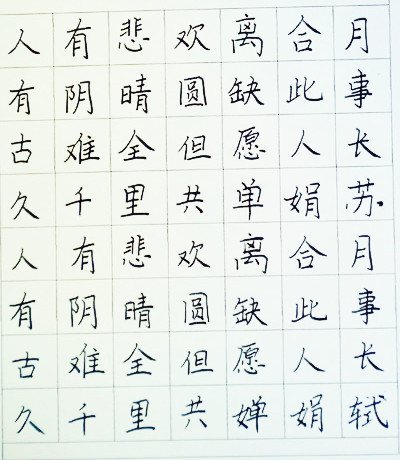 人有悲欢离合月
有阴晴圆缺此事
古难全但愿人长
久千里共单娟苏
人有悲欢离合月
有阴晴圆缺此事
古难全但愿人长
久千里共婵娟轼